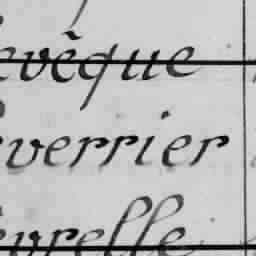 evêque
everrier
evrelle